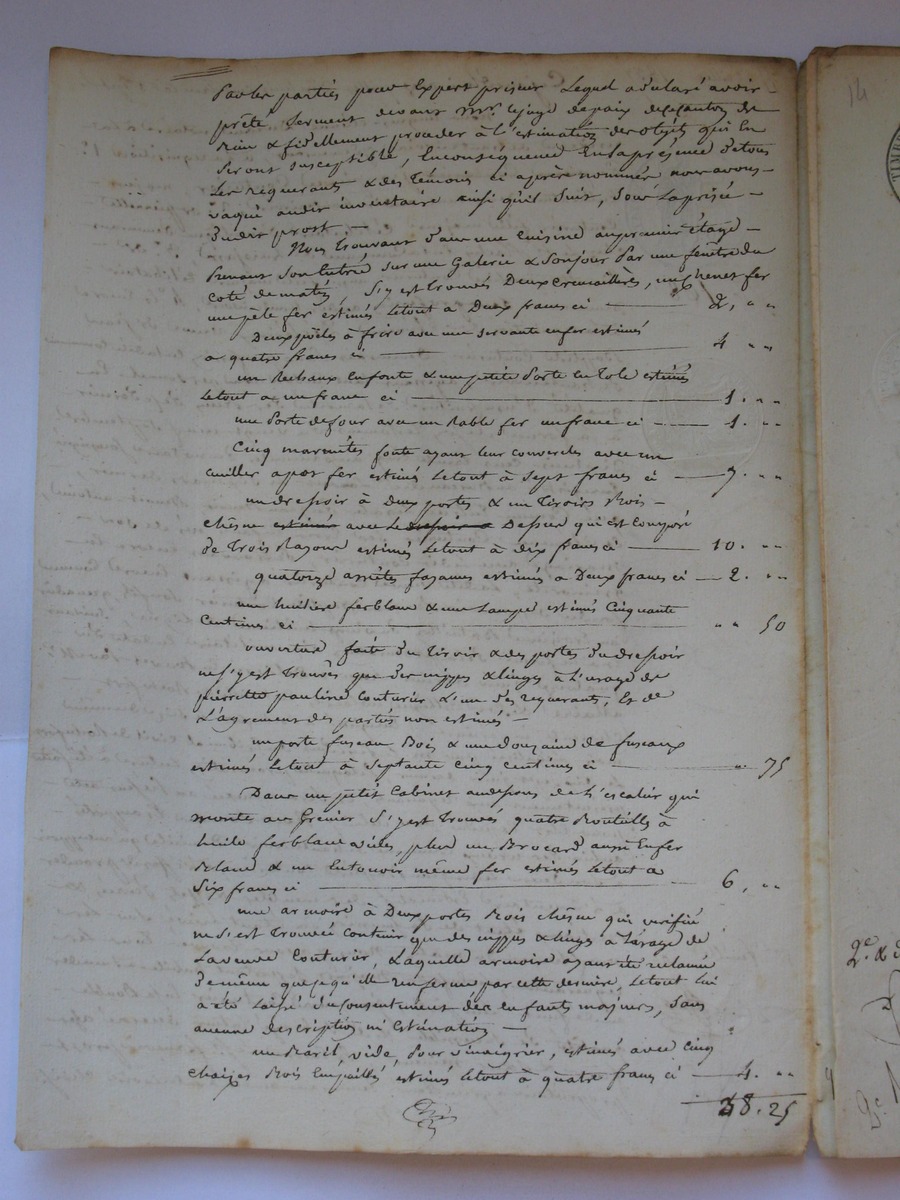 Par les parties pour Expert priseur Lequel a déclaré avoir
prêté Serment devant Mr. le juge de paix de ce canton de
bien & fidellement proceder à l'estimation des objets qui En
Seront susceptible, En consequence En la présence de tous
Les requerants & des Témoins ci après nommés nous avons
vaqué audit inventaire ainsi qu'il Suit, Sous la prisée
dudit prost. —
Nous trouvant dans une cuisine au premier étage —
Prenant Son Entrée sur une Galerie & Son jour Par une fenêtre du
coté de matin, S'y est trouvés Deux cremaillères, un chenet fer
une pèle fer estimés Le tout a Deux francs ci — 2, " "
Deux poëles à frire avec une servante en fer estimés
a quatre francs ci — 4 " "
un Rechaux En fonte & une petite Porte En Tole estimés
Le tout a un franc ci — 1. " "
une Porte de four avec un Rable fer un franc ci — 1. " "
Cinq marmites fonte ayant leur couvercles avec un
cuiller a pot fer estimés Le tout à Sept francs ci — 7. " "
un dressoir à Deux portes & un Tiroirs Bois —
chêne estimé avec Le dressoir a Dessus qui est Composé
de Trois Rayons estimés Le tout à dix francs ci — 10. " "
quatorze assiètes fayances estimés a Deux francs ci — 2. " "
une huilière ferblanc & une Lampe estimés Cinquante
Centimes ci — " " 50
ouverture faite du Tiroir & des portes du dressoir
ne s'y est Trouvés que des nippes & linges à L'usage de
pierrette pauline Couturier L'un des requerants, Et de
L'agrement des parties non estimés —
un porte fuseau Bois & une Douzaine de fuseaux
estimés Le tout à Septante Cinq Centimes ci — " 75
Dans un petit Cabinet au dessous de L'escalier qui
monte au Grenier S'y est Trouvés quatre Bouteilles à
huile ferblanc vides, plus un Brocard aussi En fer
Blanc & un Entonoir même fer estimés Le tout a
Six francs ci — 6, " "
une armoire à Deux portes Bois chêne qui verifié
ne S'est Trouvée Contenir que des nippes & linges à L'usage de
La veuve Couturier, Laquelle armoire ayant été reclamée
de même que ce qu'elle renferme par cette dernière, Le tout Lui
a été Laissé du Consentement des enfants majeurs, Sans
aucune description ni Estimation —
un Baril, vide, Pour vinaigrier, estimés avec Cinq
chaizes Bois Empaillés estimés Le tout à quatre francs ci — 4. " "
38. 25
14
2e